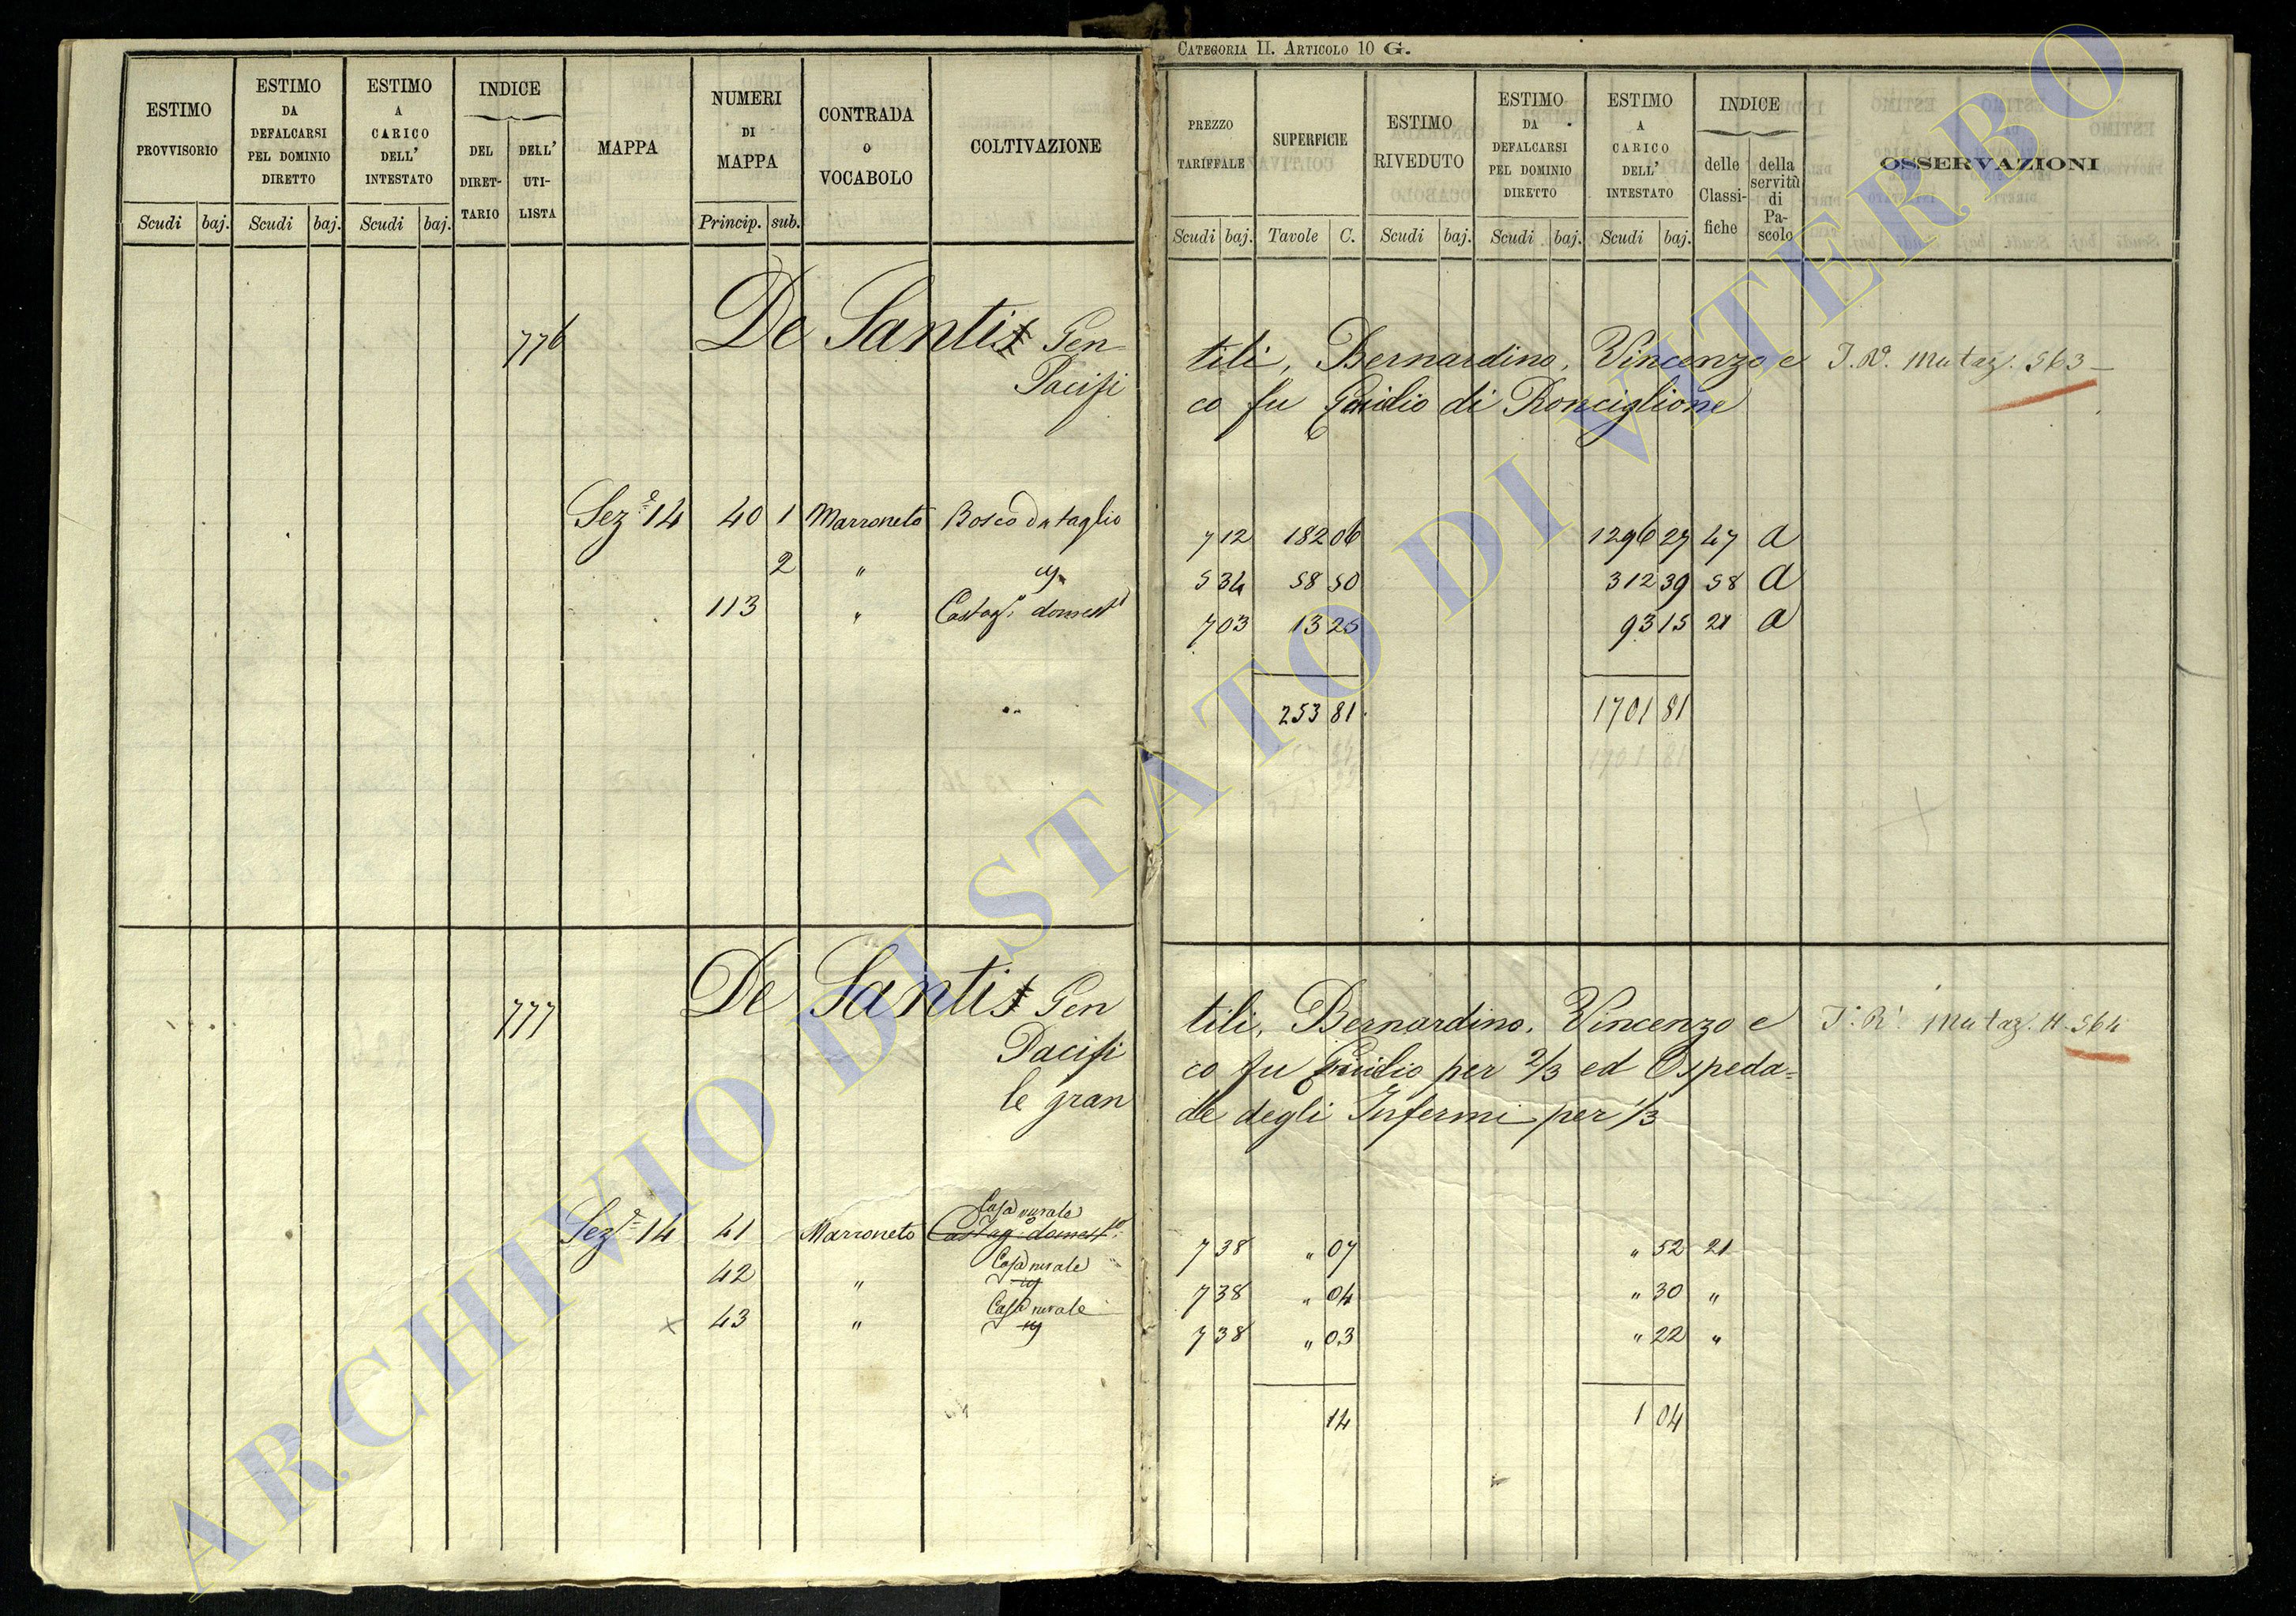 CATEGORIA II. ARTICOLO 10 G.
ESTIMO PROVVISORIO
Scudi baj.
ESTIMO DA DEFALCARSI PEL DOMINIO DIRETTO
Scudi baj.
ESTIMO A CARICO DELL' INTESTATO
Scudi baj.
INDICE
DEL DIRET-TARIO
DELL' UTI-LISTA
MAPPA
NUMERI DI MAPPA
Princip. sub.
CONTRADA O VOCABOLO
COLTIVAZIONE
PREZZO TARIFFALE
Scudi baj.
SUPERFICIE
Tavole C.
ESTIMO RIVEDUTO
Scudi baj.
ESTIMO DA DEFALCARSI PEL DOMINIO DIRETTO
Scudi baj.
ESTIMO A CARICO DELL' INTESTATO
Scudi baj.
INDICE
delle Classi-fiche
della servitù di Pa-scolo
OSSERVAZIONI
776 De Santis Gen tili, Bernardino, Vincenzo e Mutaz. 563
Pacifi co fu Giulio di Ronciglione
Sez.e 14 40 1 Marroneto Bosco da taglio 7 12 182 06 1296 27 47 a
2 " 5 34 58 50 312 39 58 a
113 " Castag.o domest.o 7 03 13 25 93 15 21 a
253 81 1701 81
1701 81
777 De Santis Gen tili, Bernardino, Vincenzo e Mutaz. 564
Pacifi co fu Giulio per 2/3 ed Ospeda=
le gran de degli Infermi per 1/3
Casa rurale
Sez.e 14 41 Marroneto Castag.o domest.o 7 38 " 07 " 52 21
Casa rurale
42 " 7 38 " 04 " 30 "
Casa rurale
43 " 7 38 " 03 " 22 "
14 1 04
ARCHIVIO DI STATO DI VITERBO